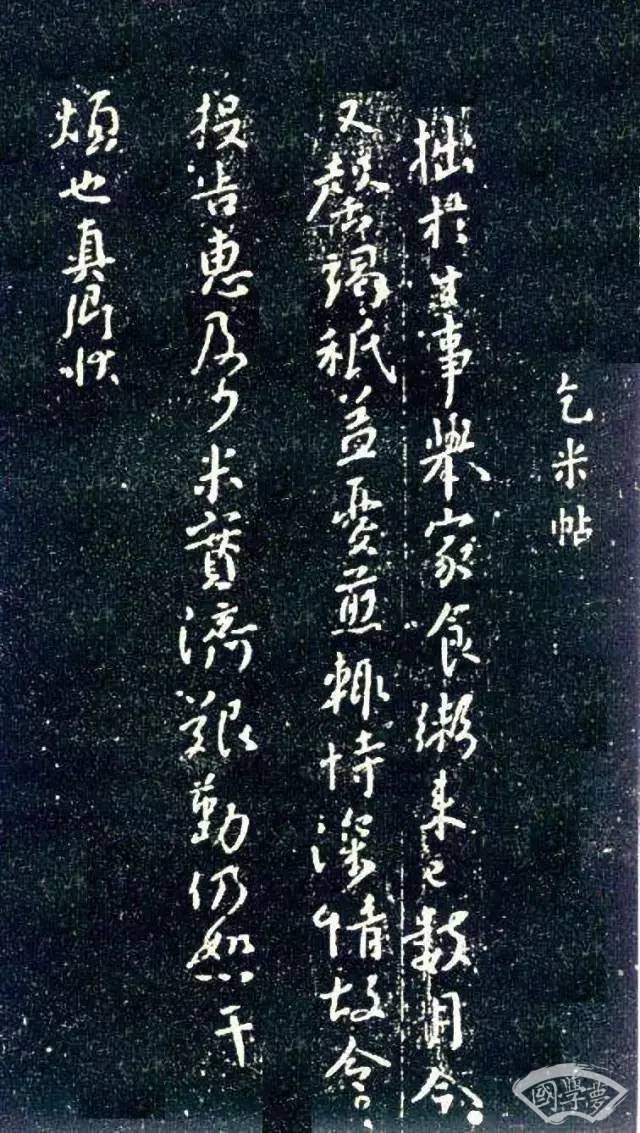 乞米帖
拙於生事舉家食粥来已數月今
又罄竭祗益憂煎輙恃深情故令
投告惠及少米實濟艱勤仍恕干
煩也真卿状
國學夢